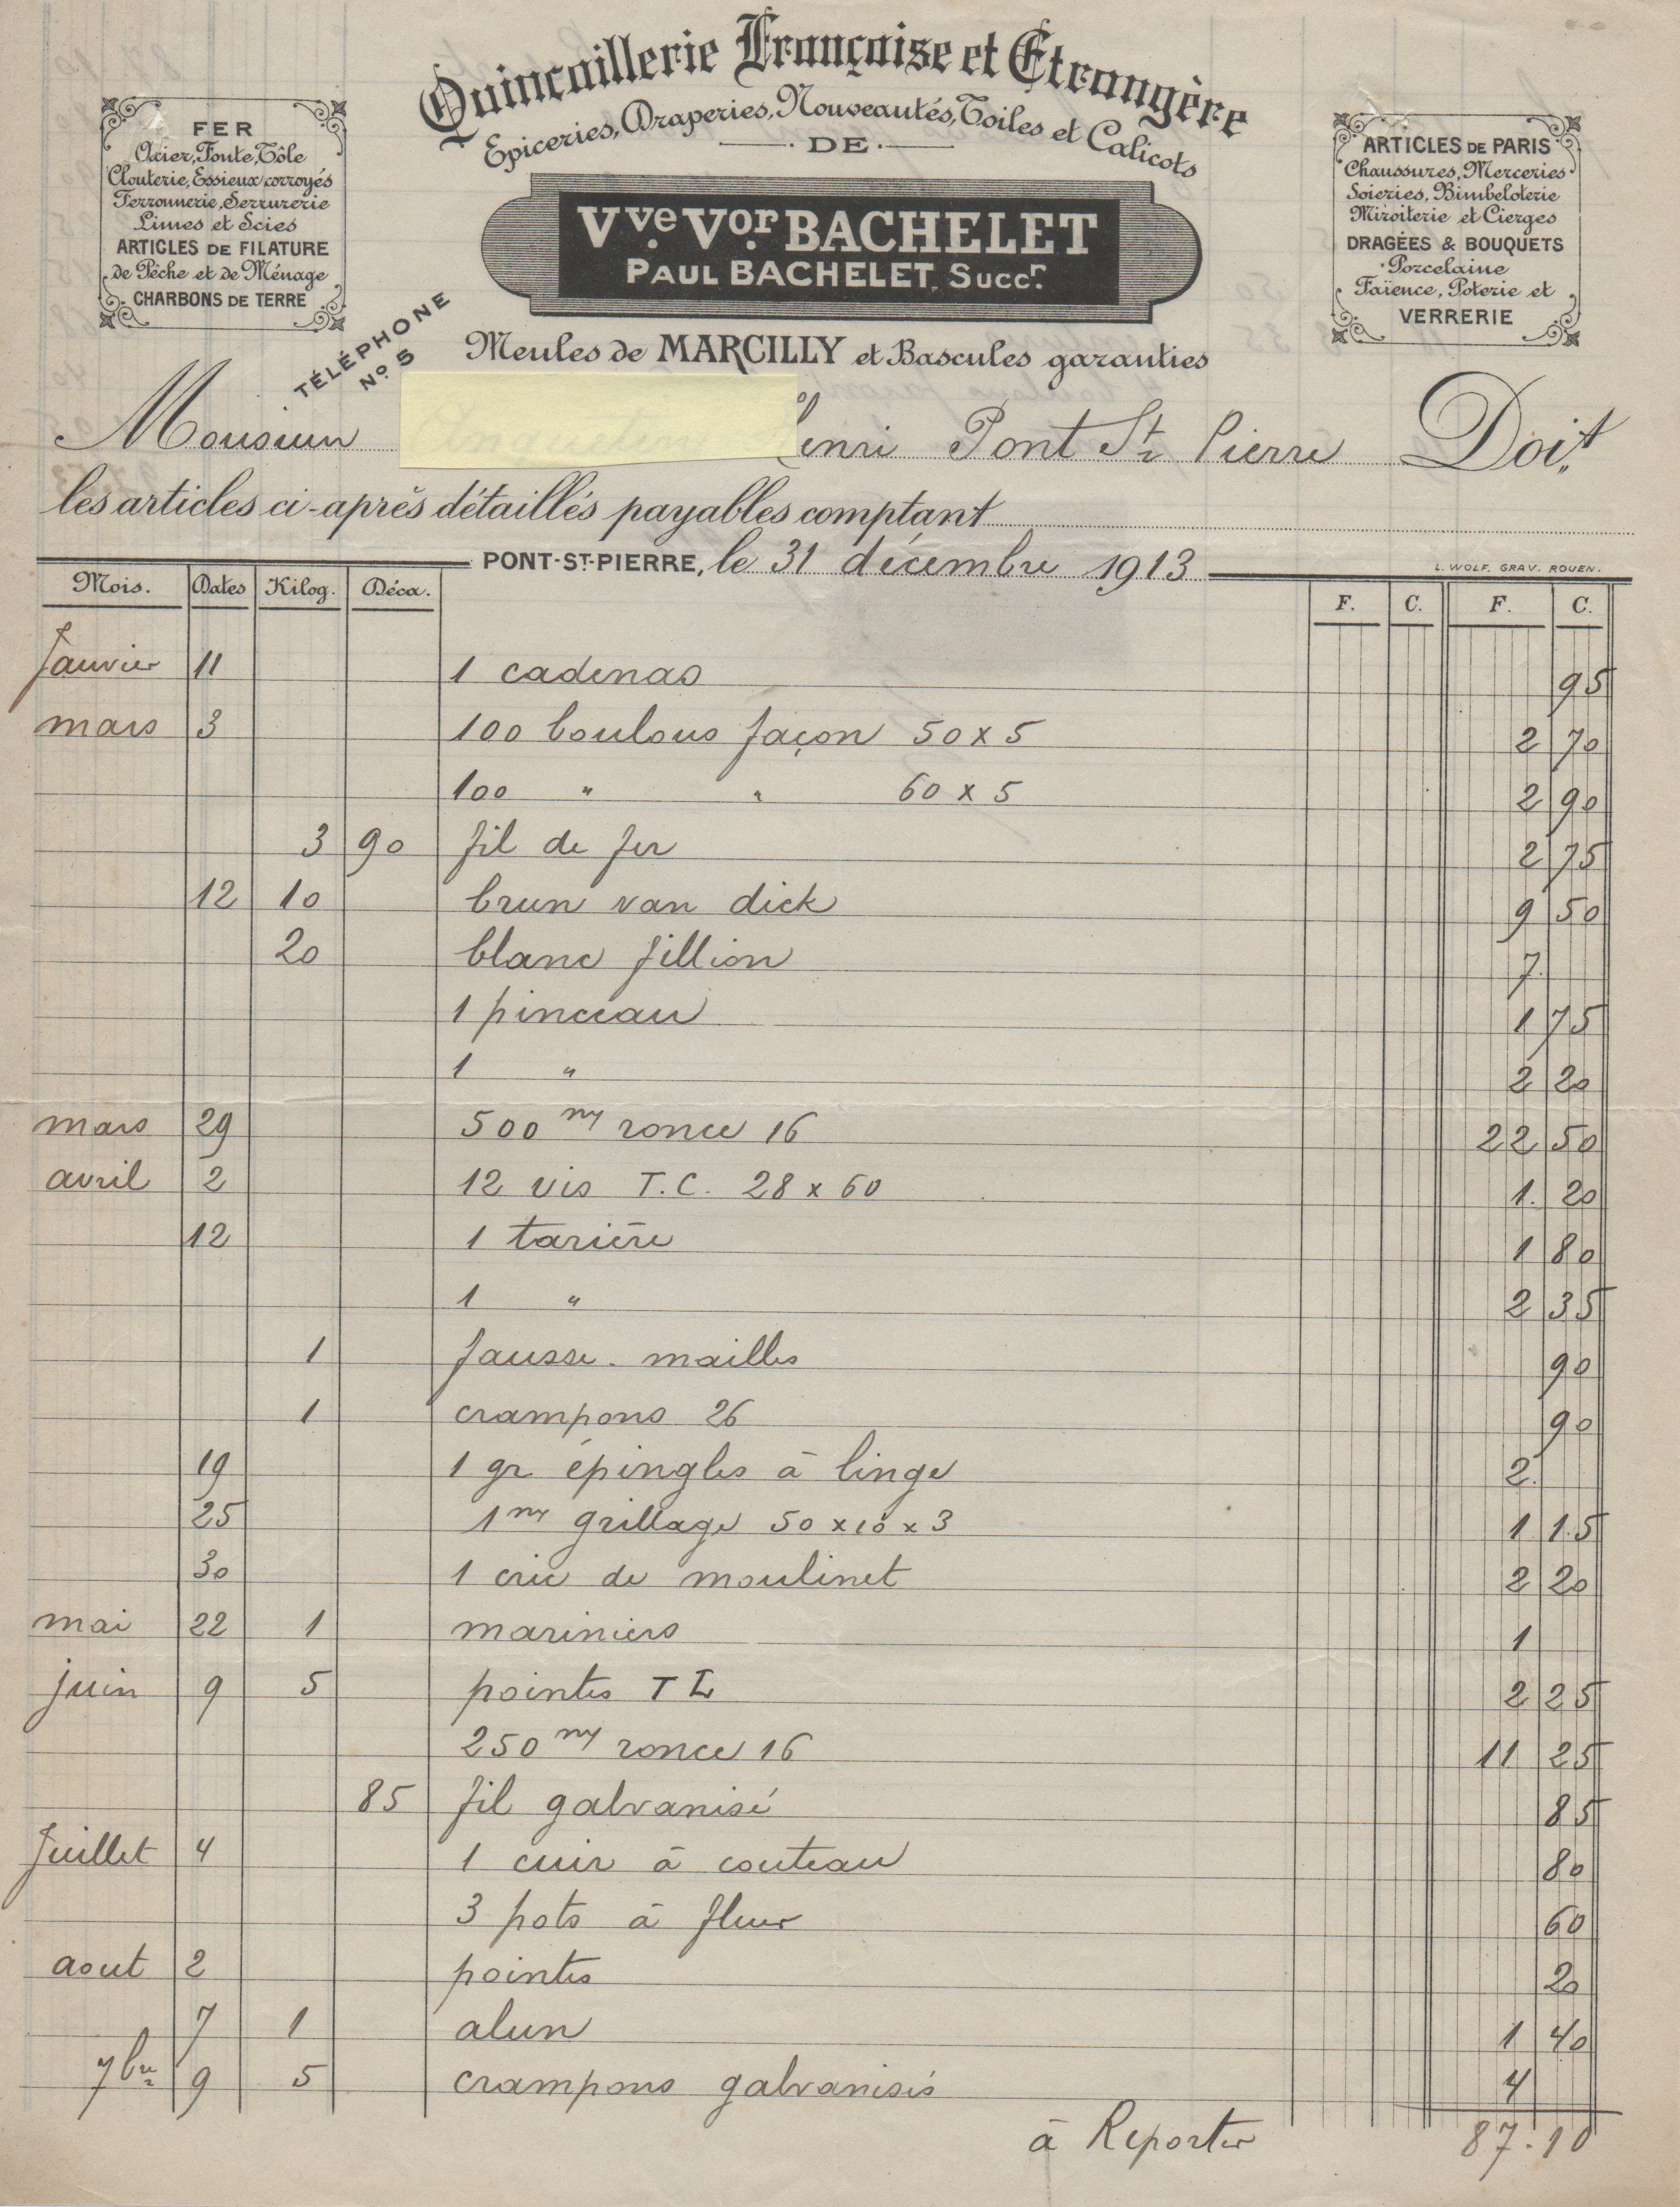 Quincaillerie Française et Etrangère
Epiceries, Draperies, Nouveautés, Toiles et Calicots
DE
Vve Vor BACHELET
PAUL BACHELET, Succr.
Meules de MARCILLY et Bascules garanties
FER
Acier, Fonte, Tôle
Clouterie, Essieux corroyés
Ferronnerie, Serrurerie
Limes et Scies
ARTICLES DE FILATURE
de Pêche et de Ménage
CHARBONS DE TERRE
TÉLÉPHONE
No 5
ARTICLES DE PARIS
Chaussures, Merceries
Soieries, Bimbeloterie
Miroiterie et Cierges
DRAGÉES & BOUQUETS
Porcelaine
Faïence, Poterie et
VERRERIE
Monsieur Henri Pont St Pierre Doit
les articles ci-après détaillés payables comptant
PONT-ST-PIERRE, le 31 décembre 1913
L. WOLF, GRAV. ROUEN.
Mois. Dates Kilog. Déca. F. C. F. C.
Janvier 11 1 cadenas 95
mars 3 100 boulons façon 50 x 5 2 70
100 " " 60 x 5 2 90
3 90 fil de fer 2 75
12 10 brun van dick 9 50
20 blanc fillion 7
1 pinceau 1 75
1 " 2 20
mars 29 500 m ronce 16 22 50
avril 2 12 vis T.C. 28 x 60 1. 20
12 1 tarière 1 80
1 " 2 35
1 fausse-mailles 90
1 crampons 26 90
19 1 gr épingles à linge 2.
25 1 m grillage 50 x 10 x 3 1 15
30 1 cric de moulinet 2 20
mai 22 1 mariniers 1
juin 9 5 pointes T L 2 25
250 m ronce 16 11 25
85 fil galvanisé 85
Juillet 4 1 cuir à couteau 80
3 pots à fleur 60
aout 2 pointes 20
7 1 alun 1 40
7bre 9 5 crampons galvanisés 4
à Reporter 87.10